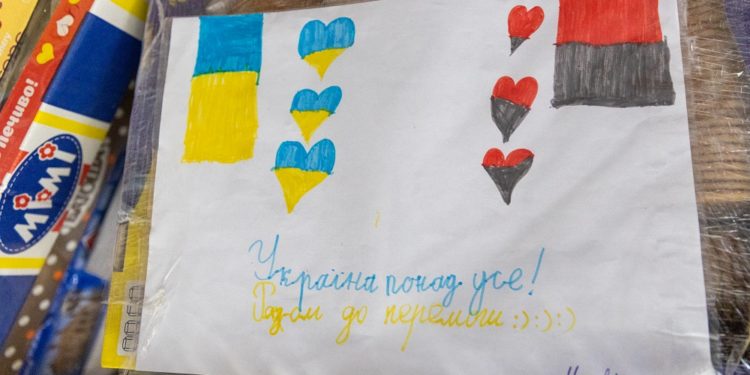 Печиво!
МІМІ
Україна понад усе!
Разом до перемоги :) :) :)